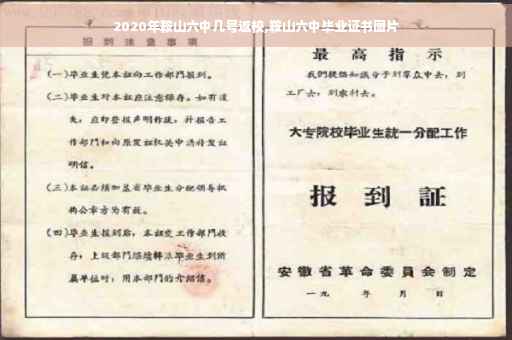 2020年鞍山六中几号返校,鞍山六中毕业证书图片
报到注意事项
(一)毕业生凭本证向工作部門报到。
(二)毕业生对本证应注意保存。如有遗
失,应即登报声明作废,并报告工
作部門和向原发证机关申請补发证
明信。
(三)本证必须加盖省毕业生分配领导机
构公章方为有效。
(四)毕业生报到后,本证交工作部門收
存;上级部門
毕业生到所
属单位时,用本部門的介绍信。
最高指示
我們提倡知識分子到羣众中去,到
工厂去,到农村去。
大专院校毕业生統一分配工作
报到証
安徽省革命委員会制定
一九 年 月 日